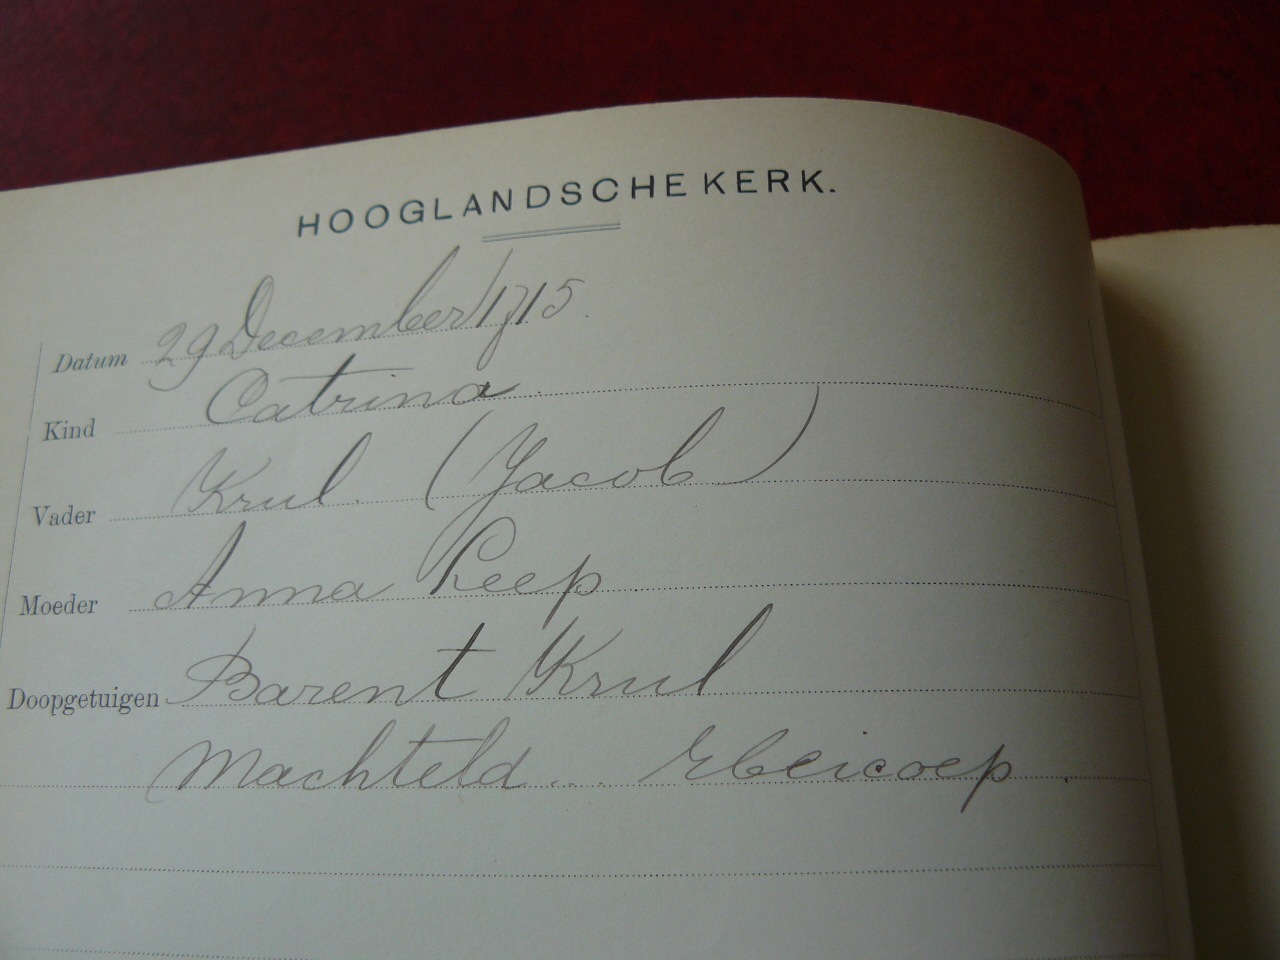 HOOGLANDSCHE KERK.
Datum 29 December 1715.
Kind Catrina
Vader Krul. (Jacob)
Moeder Anna Leep
Doopgetuigen Barent Krul
Machteld